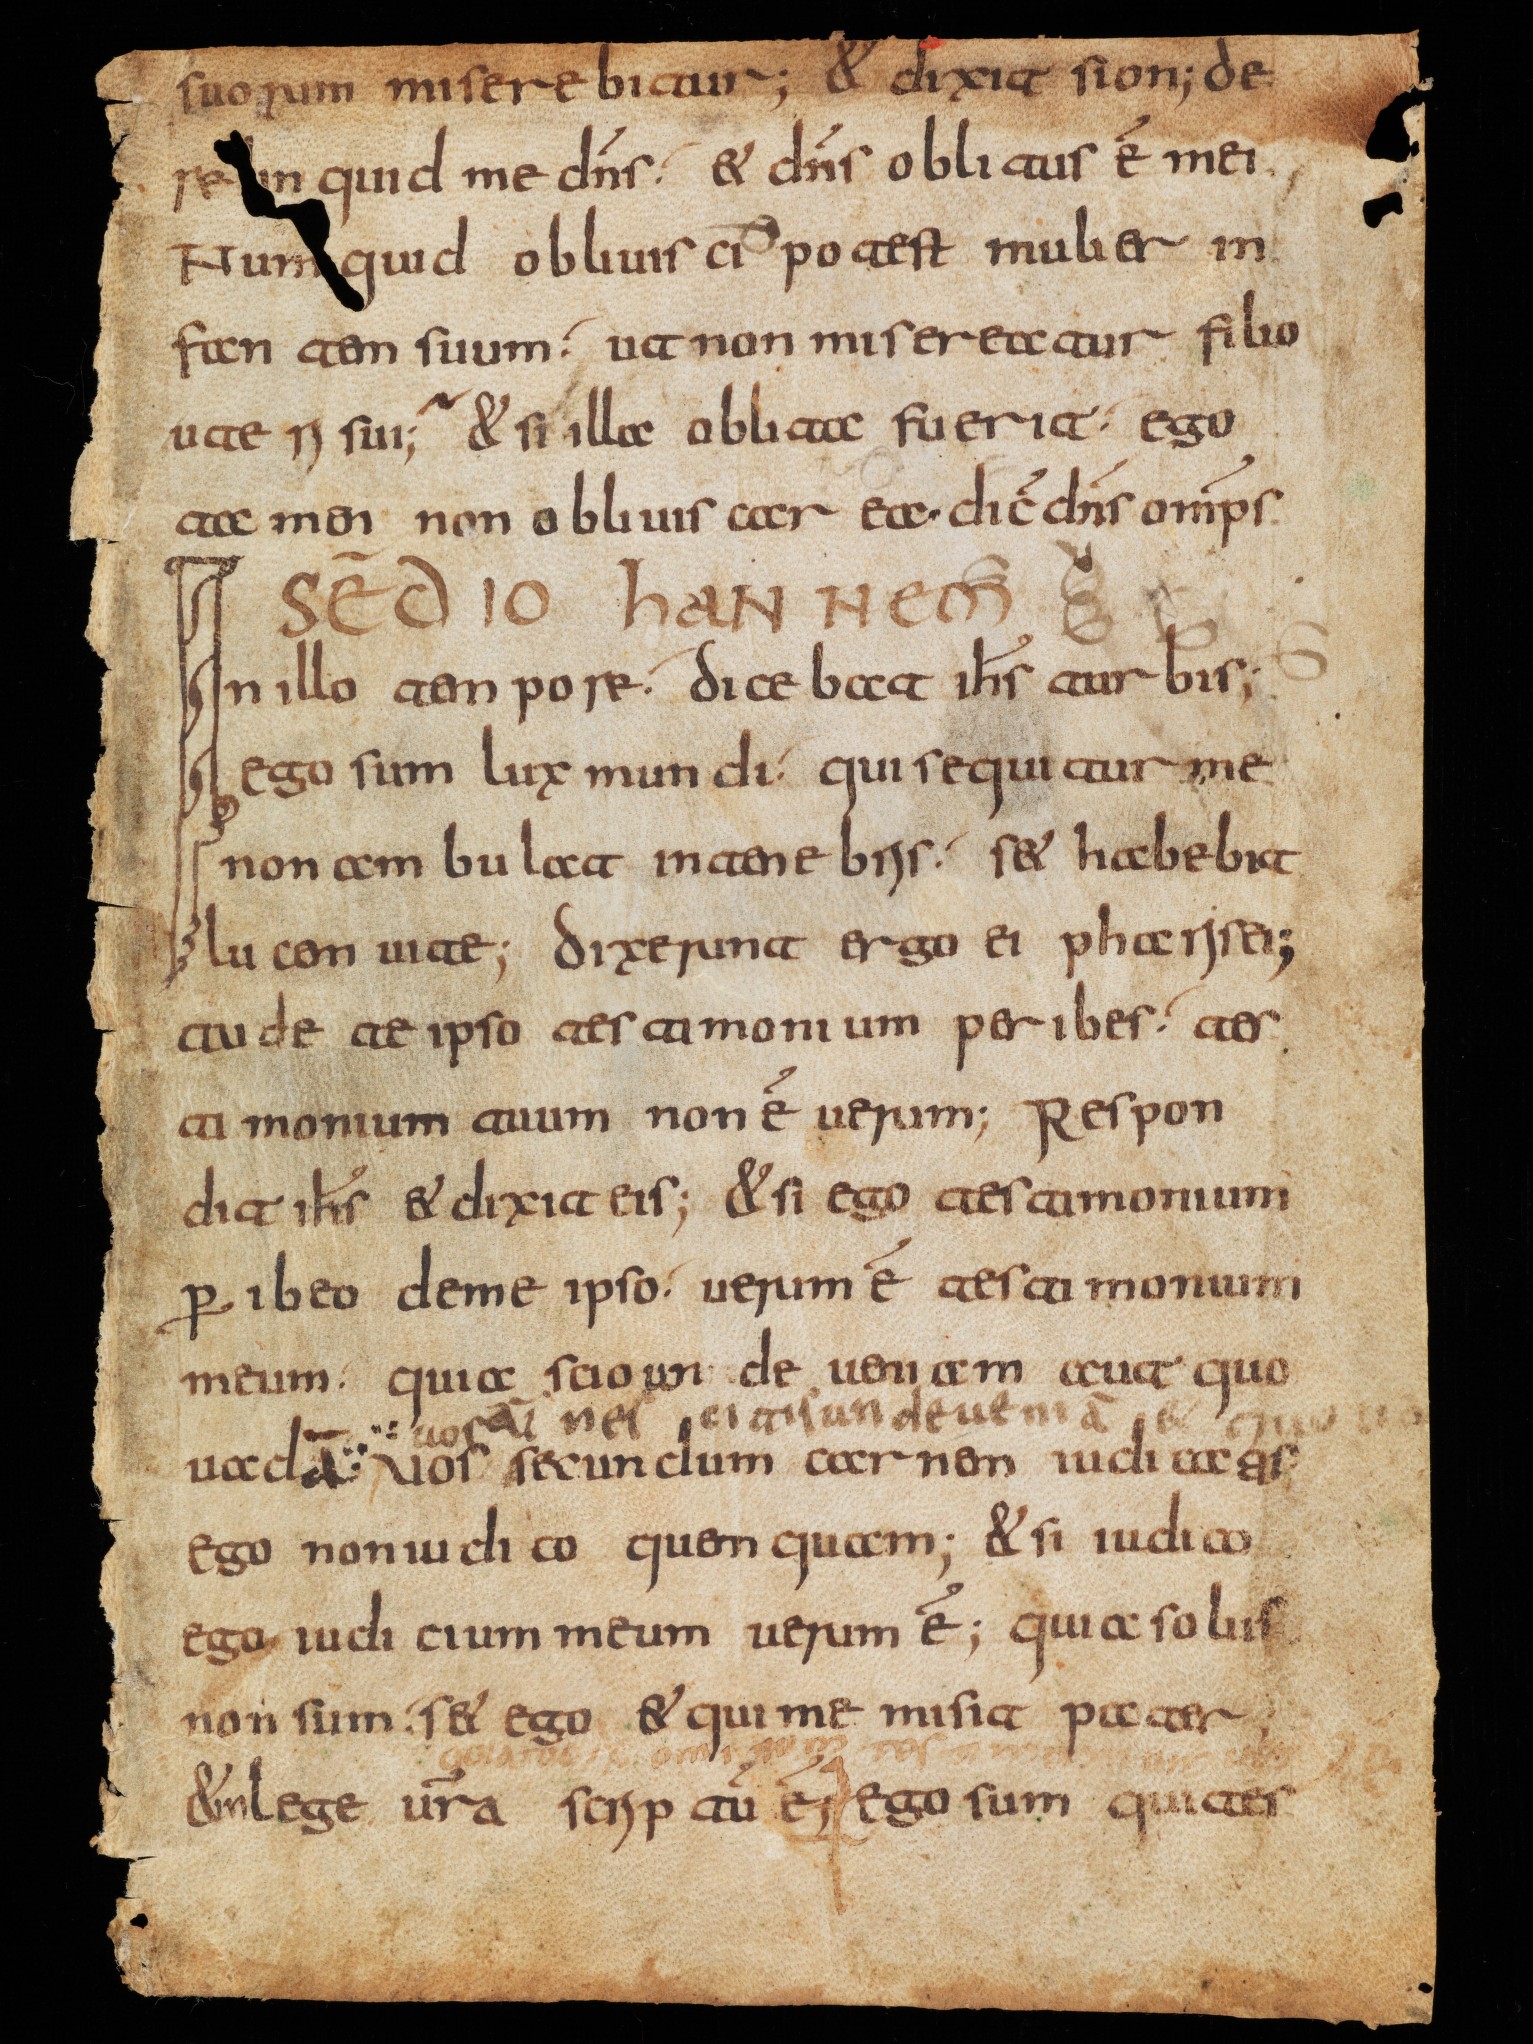 suorum miserebitur; & dixit sion; de
relinquid me dn̄s. & dn̄s oblitus ē mei.
Numquid obliuisci potest mulier in
fantem suum. ut non misereatur filio
uteri sui; & si illa oblita fuerit. ego
tamen non obliuiscar ea. dic̄ dn̄s om̄ps.
SC̄D IOHANNEM
In illo tempore. dicebat ih̄s turbis;
ego sum lux mundi. qui sequitur me
non ambulat in tenebris. set habebit
lucem uite; dixerunt ergo ei pharisei;
tu de te ipso testimonium peribes. tes
timonium tuum non ē uerum; Respon
dit ih̄s & dixit eis; & si ego testimonium
ꝑibeo de me ipso. uerum ē testimonium
meum. quia scio unde ueni am aut quo
uos āt nescitis unde ueniā & quo ua
uadā. Uos secundum carnem iudicatis
ego non iudico quemquam; & si iudico
ego iudicium meum uerum ē; quia solus
non sum. set ego & qui me misit pater
& in lege ūra scriptū ē; ego sum qui tes